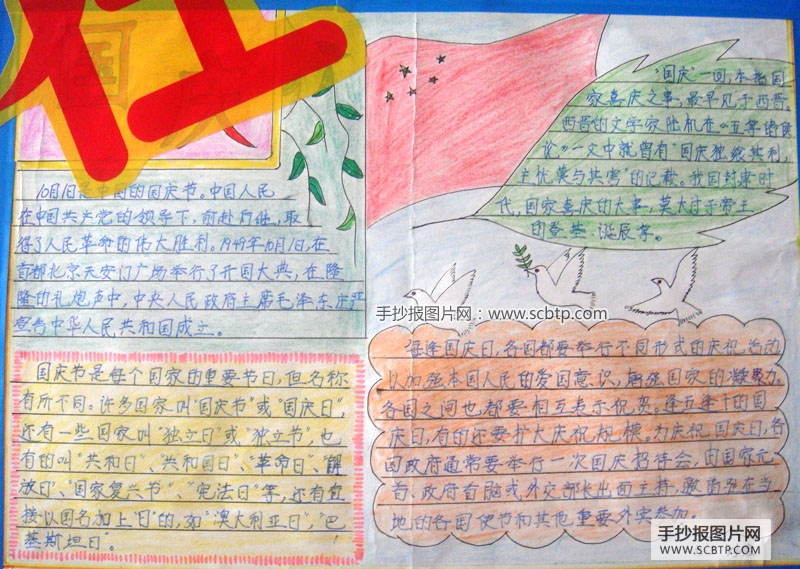 国庆
10月1日是中国的国庆节。中国人民
在中国共产党的领导下,前赴后继,取
得了人民革命的伟大胜利。1949年10月1日,在
首都北京天安门广场举行了开国大典,在隆
隆的礼炮声中,中央人民政府主席毛泽东庄严
宣告中华人民共和国成立。
国庆节是每个国家的重要节日,但名称
有所不同。许多国家叫“国庆节”或“国庆日”,
还有一些国家叫“独立日”或“独立节”,也
有的叫“共和日”、“共和国日”、“革命日”、“解
放日”、“国家复兴节”、“宪法日”等,还有直
接以国名加上“日”的,如“澳大利亚日”,“巴
基斯坦日”。
“国庆”一词,本指国
家喜庆之事,最早见于西晋。
西晋的文学家陆机在《五等诸侯
论》一文中就曾有“国庆独飨其利,
主忧莫与其害”的记载。我国封建时
代,国家喜庆的大事,莫大过于帝王
的登基、诞辰等。
手抄报图片网:www.scbtp.com
每逢国庆日,各国都要举行不同形式的庆祝活动
以加强本国人民的爱国意识,增强国家的凝聚力。
各国之间也都要相互表示祝贺。逢五逢十的国
庆日,有的还要扩大庆祝规模。为庆祝国庆日,各
国政府通常要举行一次国庆招待会,由国家元
首、政府首脑或外交部长出面主持,邀请驻在当
地的各国使节和其他重要外宾参加。
手抄报图片网
WWW.SCBTP.COM